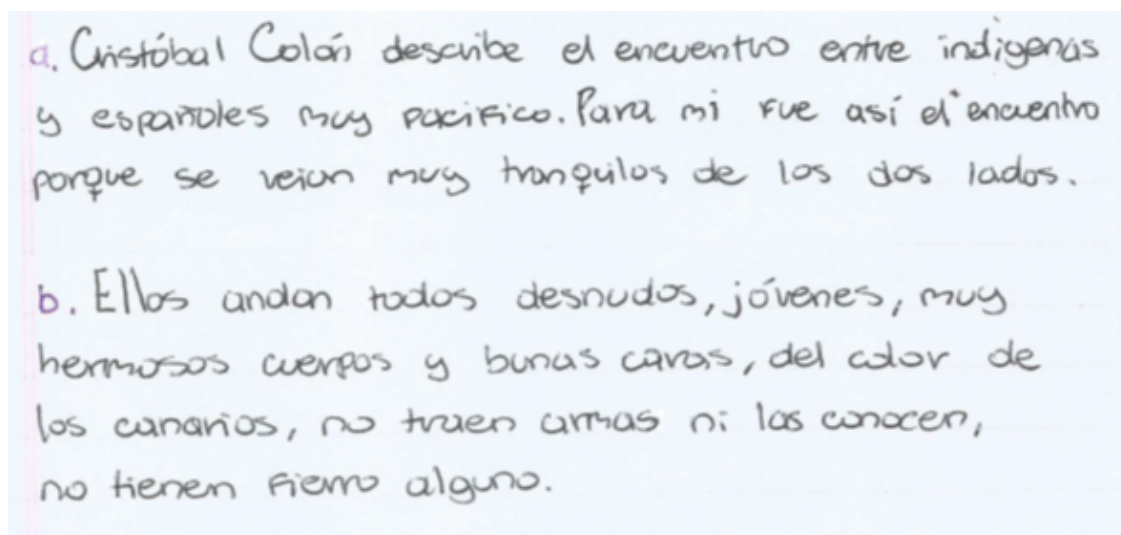 a. Cristóbal Colón describe el encuentro entre indigenas
y españoles muy pacifico. Para mi fue así el encuentro
porque se veian muy tranquilos de los dos lados.
b. Ellos andan todos desnudos, jóvenes, muy
hermosos cuerpos y bunas caras, del color de
los canarios, no traen armas ni las conocen,
no tienen fierro alguno.